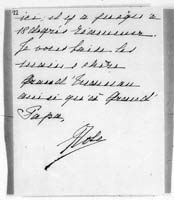 22
ici, il y a jusqu'à
18 degrés
Je vous baise les
mains chère
Grand'Maman
ainsi qu'à Grand
Papa,